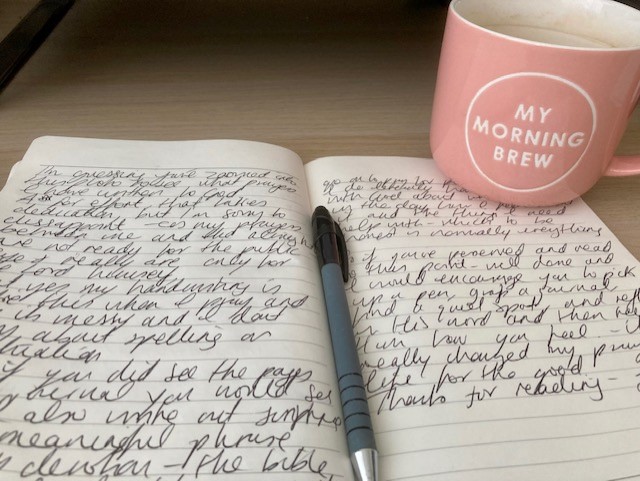 I'm guessing you've zoomed into
this photo to see what prayers
I have written to God
A for effort that takes
dedication but I'm sorry to
disappoint - cos my prayers
between me and God
are not ready for the public
really are only for
Lord himself
yes my handwriting is
like this when I pray and
is messy and I don't
about spelling or

if you did see the pages
journal you would see
also write out scripture
meaningful phrase
devotion - the bible,
go on

with and about
the
and the things I need
help with - which to be
honest is normally everything
if you've persevered and read
this point - well done and
I would encourage you to pick
up a pen, grab a journal
find a quiet spot and reflect
on His word and then
Him how you feel -
really changed my prayer
life for the good.
Thanks for reading -
MY
MORNING
BREW